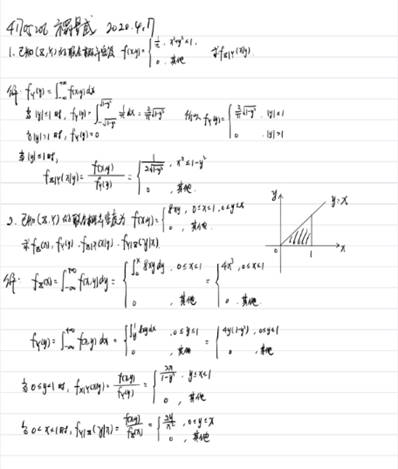 2020.4.7
1. 已知(X,Y)的联合概率密度 f(x,y)={ 1/π, x²+y²<1, 0, 其他 求f_{X|Y}(x|y).
解: f_Y(y)=∫_{-∞}^{+∞} f(x,y)dx
当|y|≤1时, f_Y(y)=∫_{-√(1-y²)}^{√(1-y²)} 1/π dx = 2/π √(1-y²) f_Y(y)={ 2/π √(1-y²), |y|≤1 0, |y|>1
当|y|>1时, f_Y(y)=0
当|y|≤1时,
f_{X|Y}(x|y)= f(x,y)/f_Y(y) = { 1/(2√(1-y²)), x²≤1-y² 0, 其他.
2. 已知(X,Y)的联合概率密度为 f(x,y)={ 8xy, 0≤x<1, 0≤y≤x 0, 其他
求f_X(x), f_Y(y), f_{X|Y}(x|y), f_{Y|X}(y|x)
y y=x
0 1 x
解: f_X(x)=∫_{-∞}^{+∞} f(x,y)dy={ ∫_0^x 8xydy, 0≤x<1 0, 其他 = { 4x³, 0≤x<1 0, 其他
f_Y(y)=∫_{-∞}^{+∞} f(x,y)dx={ ∫_y^1 8xydx, 0≤y≤1 0, 其他 = { 4y(1-y²), 0≤y≤1 0, 其他
当0≤y<1时, f_{X|Y}(x|y)= f(x,y)/f_Y(y) = { 2x/(1-y²), y≤x<1 0, 其他
当0<x<1时, f_{Y|X}(y|x)= f(x,y)/f_X(x) = { 2y/x², 0≤y≤x 0, 其他